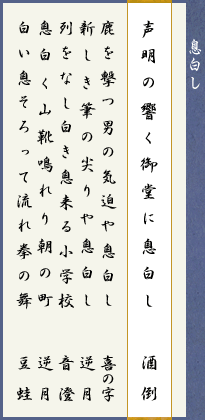 息白し
声明の響く御堂に息白し 酒倒
鹿を撃つ男の気迫や息白し 喜の字
新しき筆の尖りや息白し 逆月
列をなし白き息来る小学校 音澄
息白く山靴鳴れり朝の町 逆月
白い息そろって流れ拳の舞 豆蛙